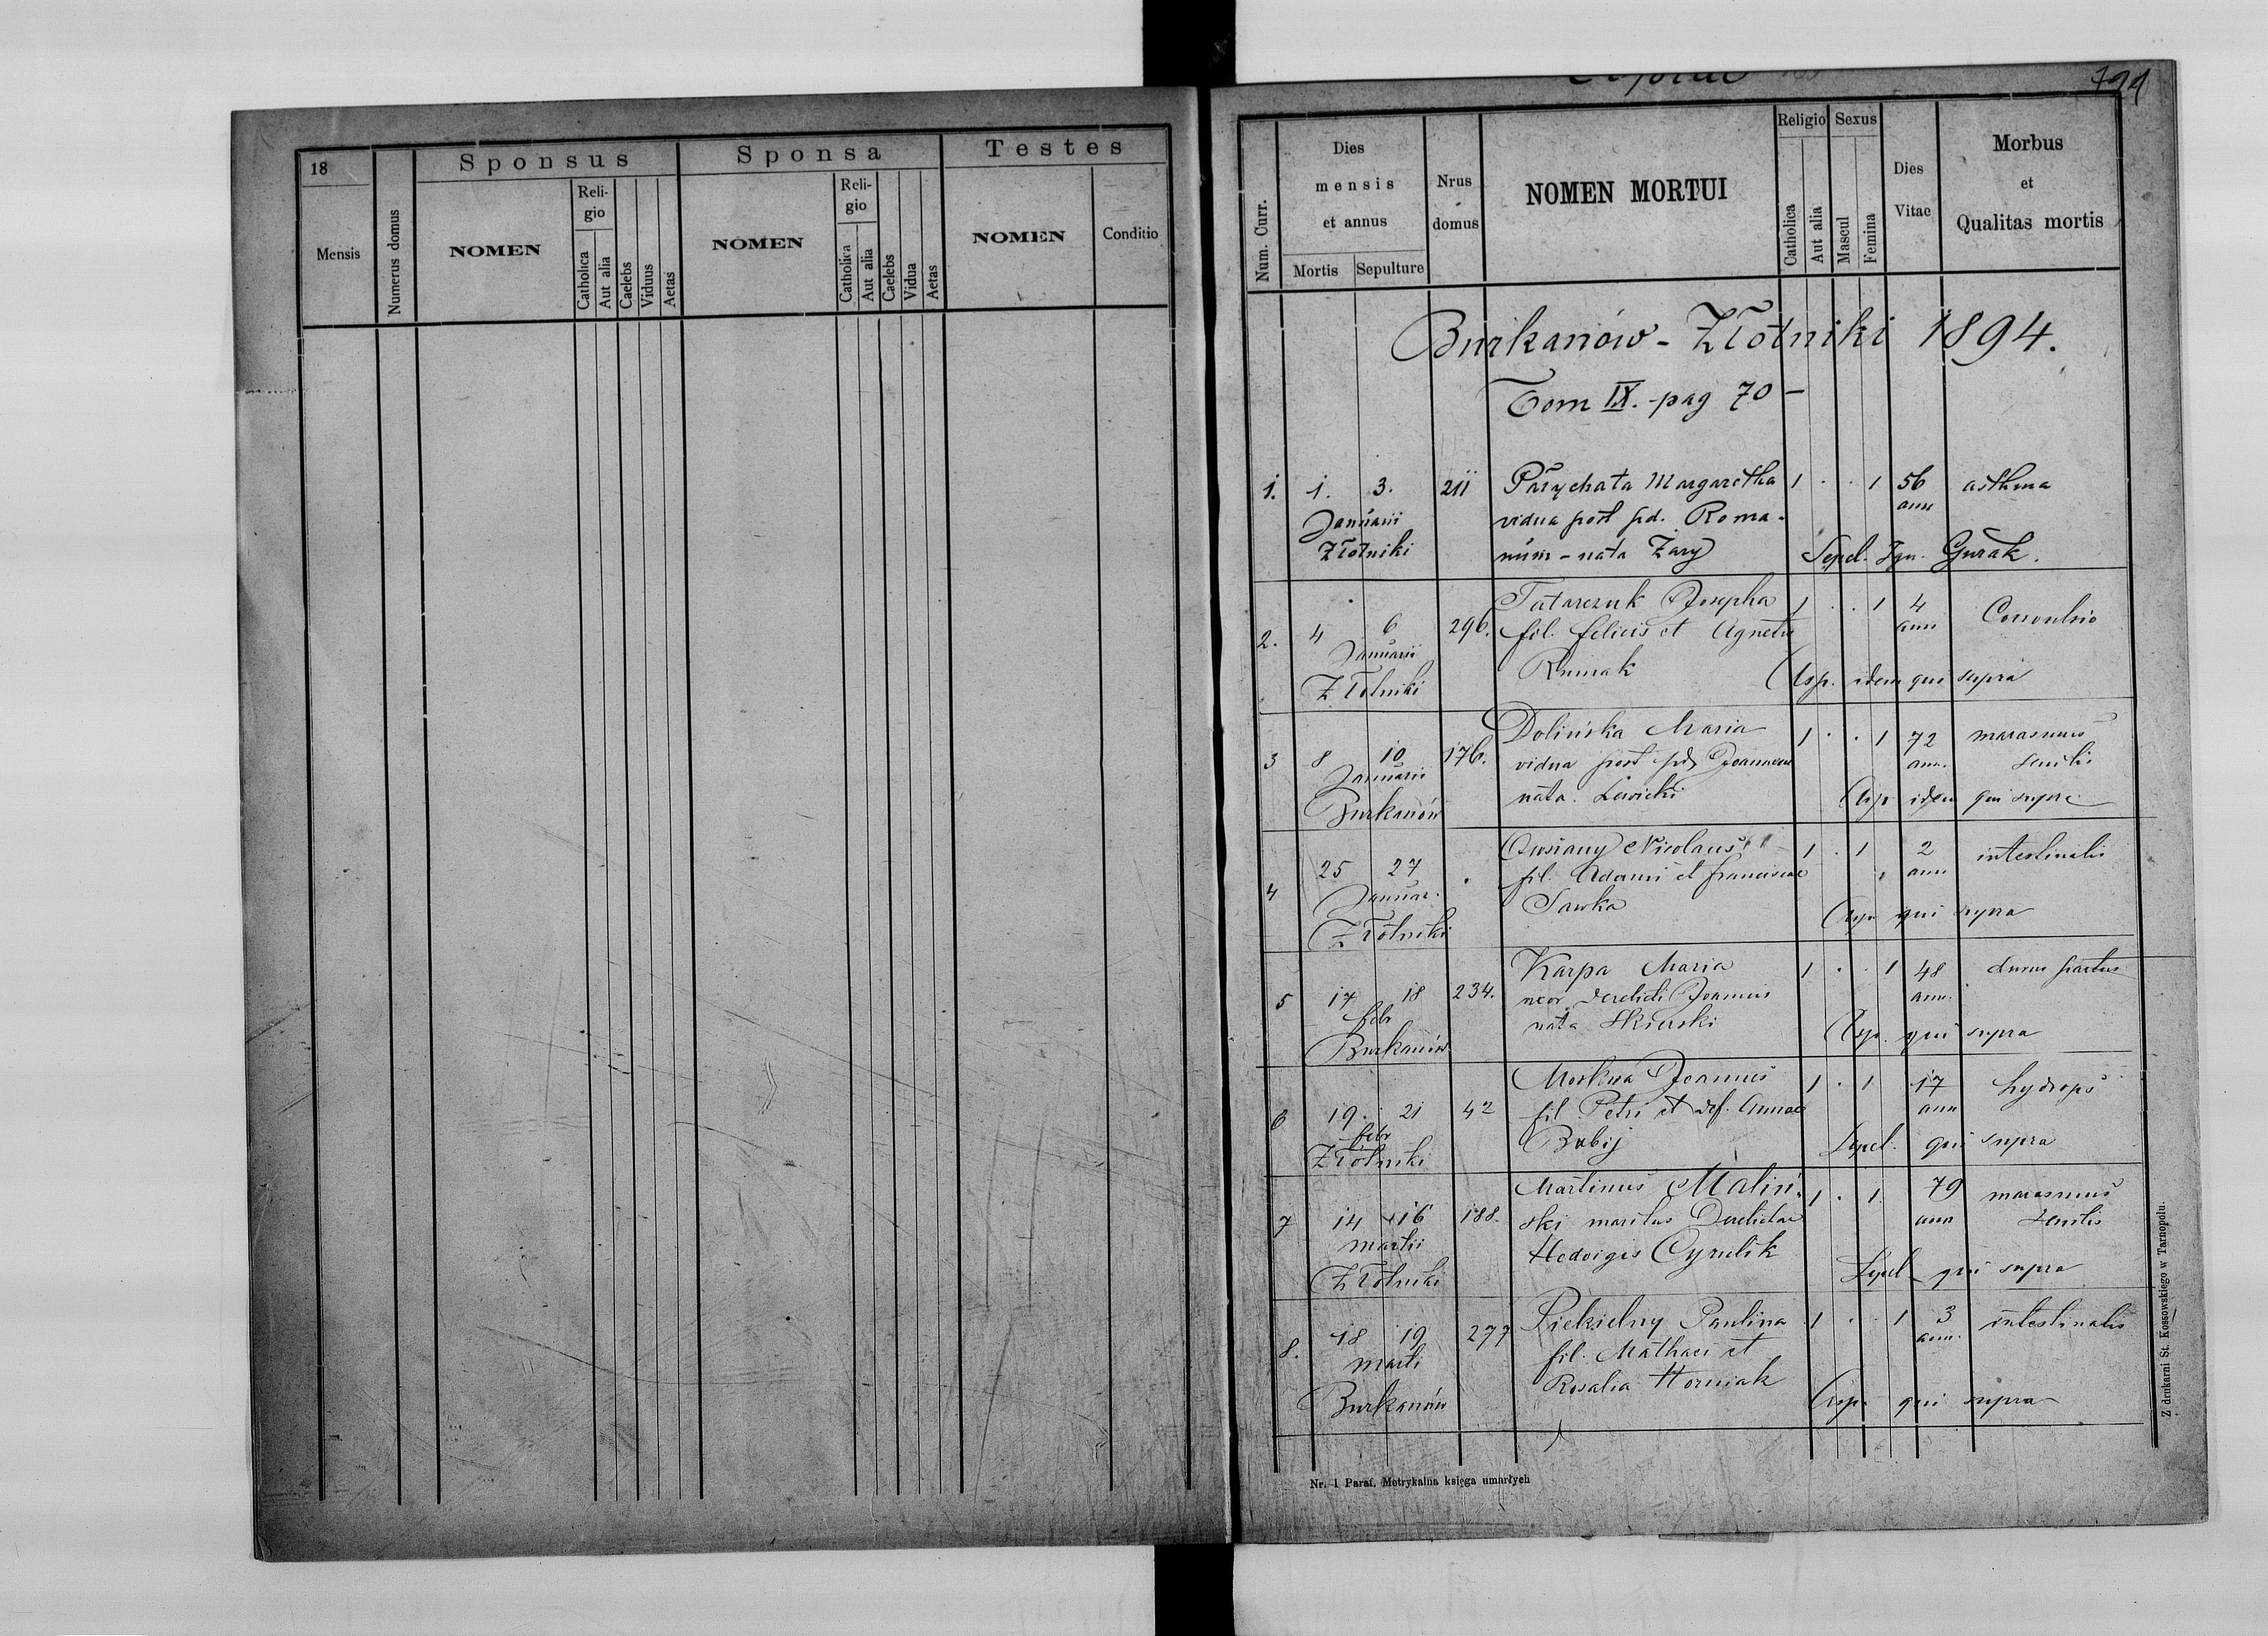 18
Mensis
Numerus domus
Sponsus
NOMEN
Reli-
gio
Catholica
Aut alia
Caelebs
Viduus
Aetas
Sponsa
NOMEN
Reli-
gio
Catholica
Aut alia
Caelebs
Vidua
Aetas
Testes
NOMEN
Conditio
Num. Curr.
Dies
mensis
et annus
Mortis Sepulture
Nrus
domus
NOMEN MORTUI
Religio
Catholica
Aut alia
Sexus
Mascul
Femina
Dies
Vitae
Morbus
et
Qualitas mortis
Burkanów - Złotniki 1894.
Tom IX. pag 70 -
1. 1. 3. 211 Margaretha 1 . . 1 56 asthma
Januarii vidua post pd. Roma- ann
Złotniki num - nata Żary Sepel. Ign. Gurak.
2. 4 6 296. Tatarczuk Josepha 1 . . 1 4
Januarii fil. Felicis et Agnetis ann
Złotniki Asp. idem qui supra
3 8 10 176. Dolińska Maria 1 . . 1 72 marasmus
Januarii vidua post Joannem ann. senilis
Burkanów nata. Lewicki Asp idem qui supra
4 25 27 . Nicolaus 1 . 1 2 intestinalis
Januar. fil. Adami et Franciscae ann
Złotniki Sawka Asp qui supra
5 17 18 234. Karpa Maria 1 . . 1 48 durus partus
febr derelicti Joannis ann.
Burkanów nata Skierski Asp. qui supra
6 19. 21 42 Joannes 1 . 1 17 hydrops
febr fil. Petri et def. Annae ann
Złotniki Babij Sepel. qui supra
7 14 16 188. Martinus Maliń- 1 . 1 79 marasmus
martii ski maritus Derelictae ann senilis
Złotniki Hedvigis Cyrulik Sepel qui supra
8. 18 19 277 Piekielny Paulina 1 . . 1 3 intestinalis
marti fil. Mathaei et ann.
Burkanów Rosalia Horniak Asp. qui supra
Nr. 1 Paraf. Metrykalna księga umarłych
Z drukarni St. Kossowskiego w Tarnopolu.